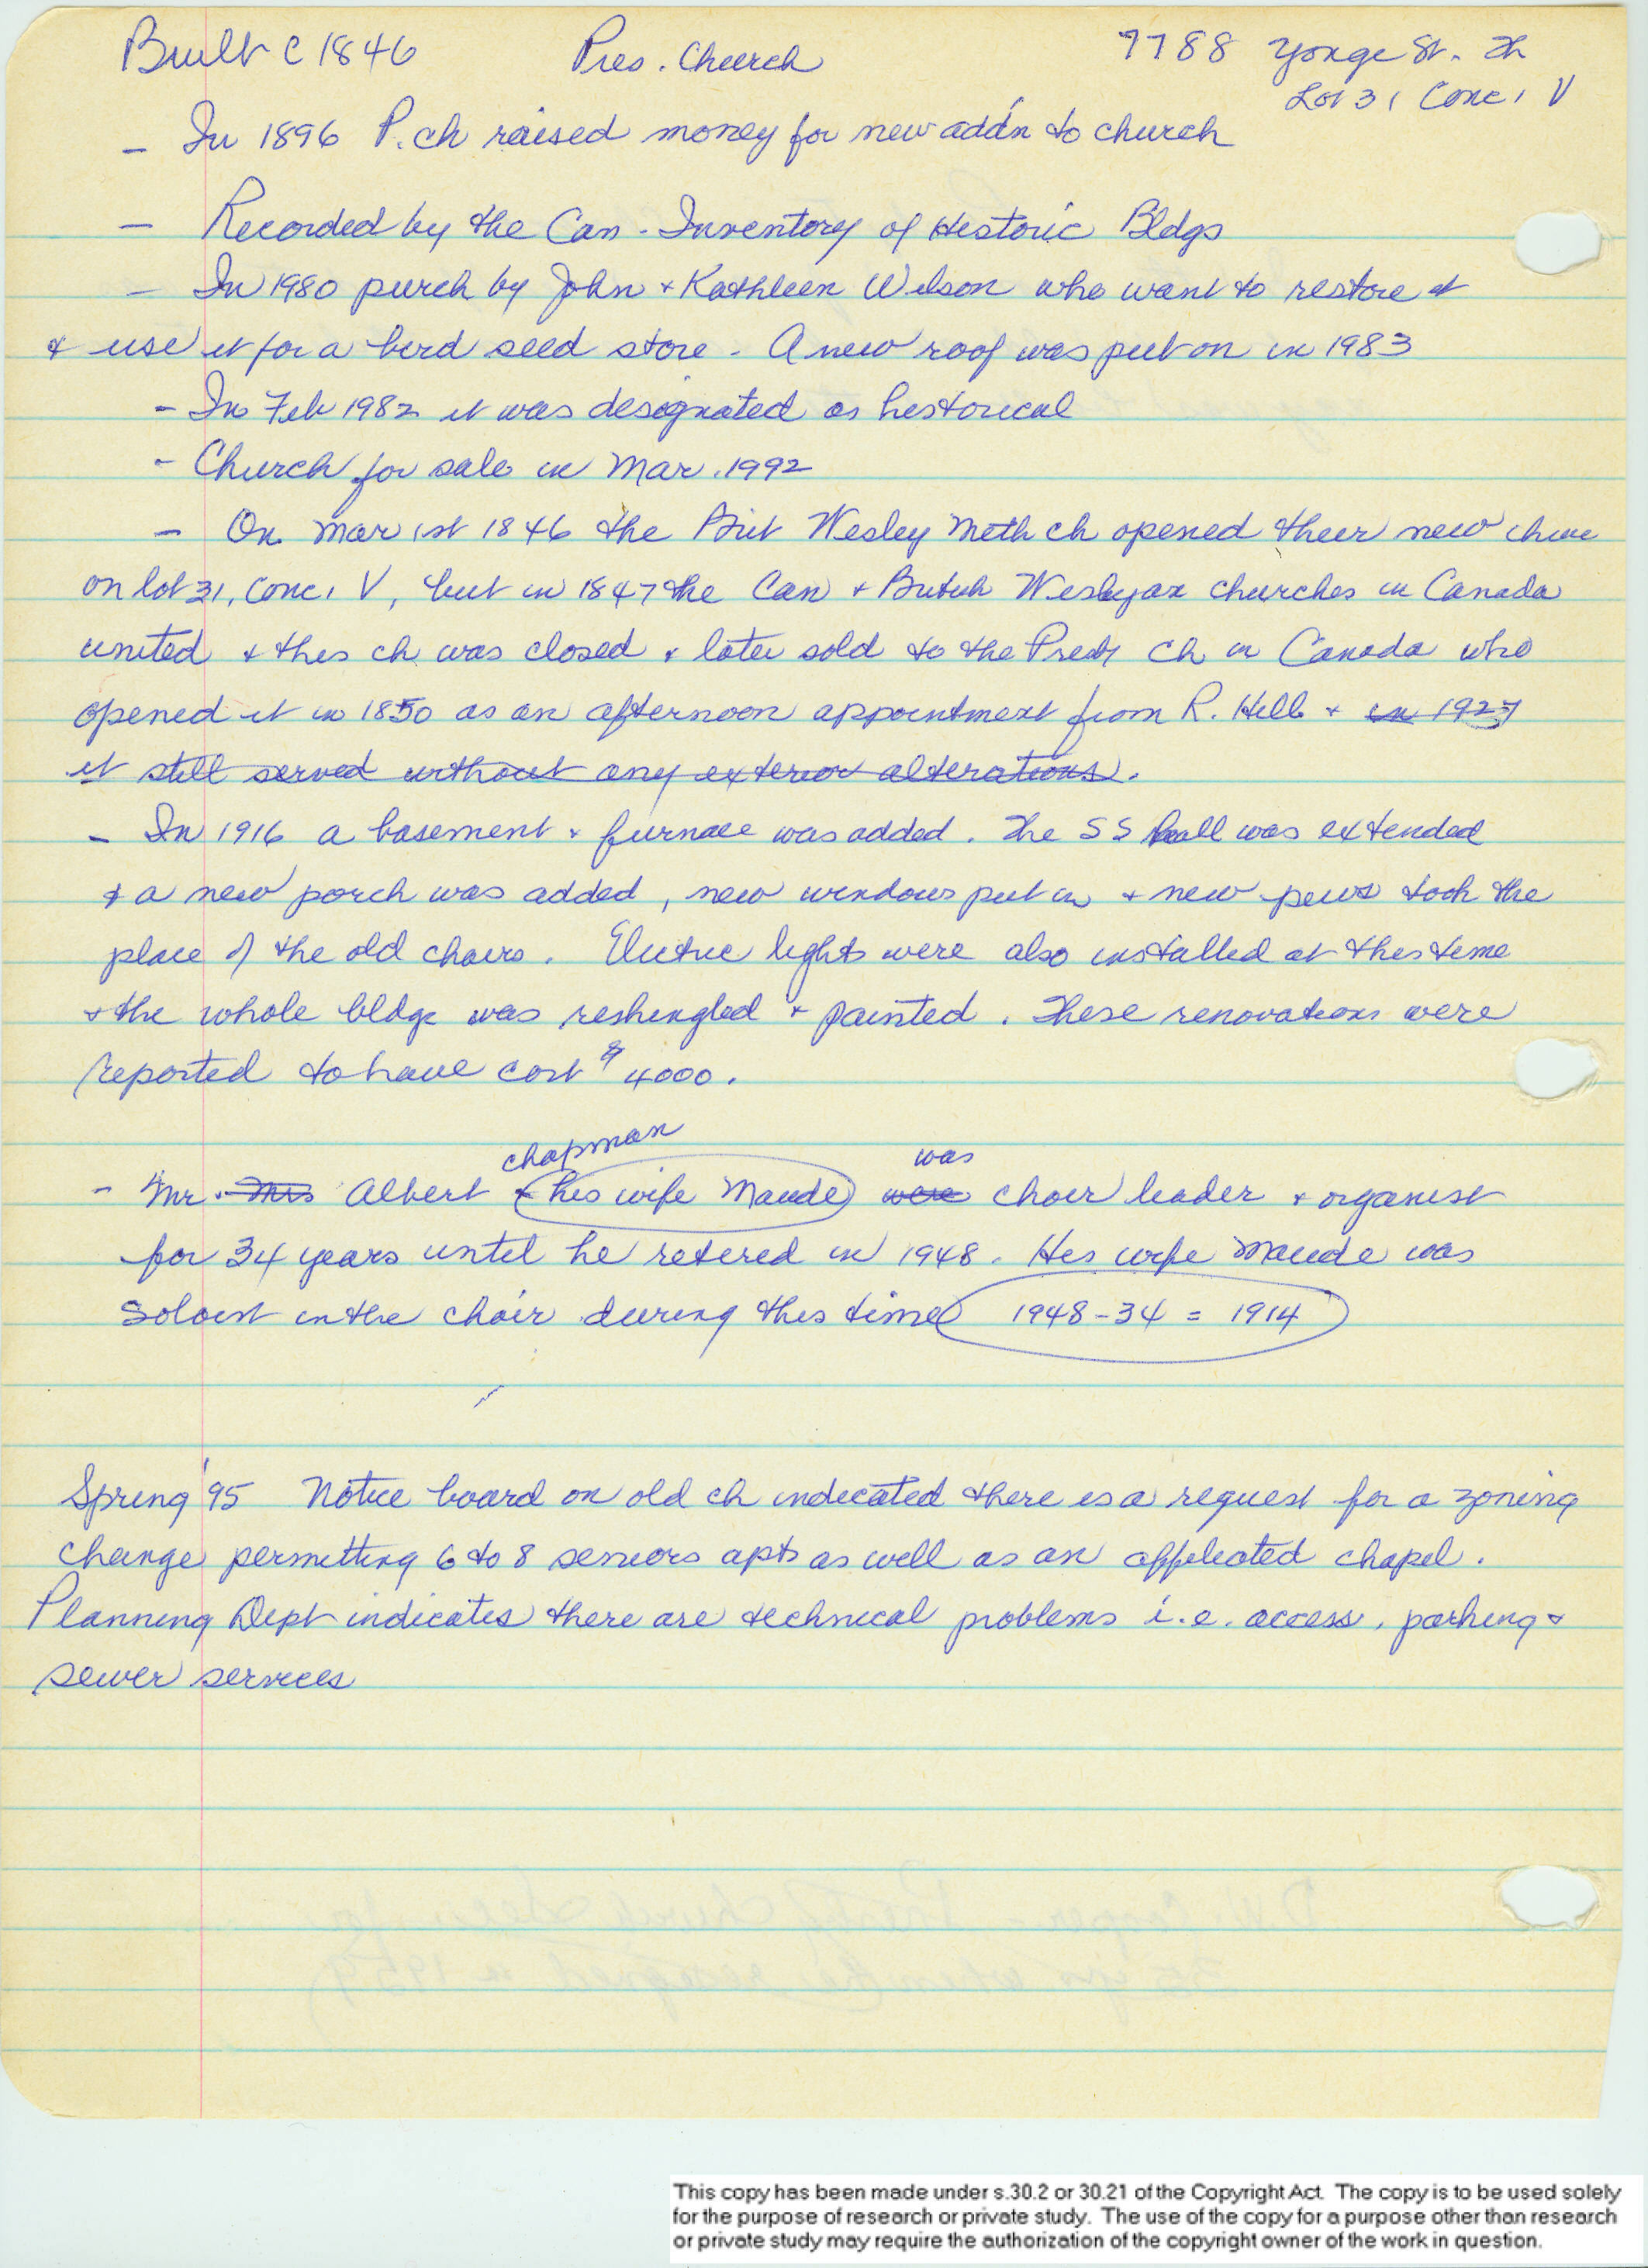 Built c 1846 Pres. Church 7788 Yonge St. Th
Lot 31 Conc 1 V
- In 1896 P. ch raised money for new add'n to church
- Recorded by the Can. Inventory of Historic Bldgs
- In 1980 purch by John + Kathleen Wilson who want to restore it
+ use it for a bird seed store - A new roof was put on in 1983
- In Feb 1982 it was designated as historical
- Church for sale in Mar. 1992
- On Mar 1st 1846 the Brit Wesley Meth ch opened their new
on lot 31, Conc 1 V, but in 1847 the Can + British Wesleyan churches in Canada
united + this ch was closed + later sold to the Presby Ch in Canada who
opened it in 1850 as an afternoon appointment from R. Hill + in 1927
it still served without any exterior alterations.
- In 1916 a basement + furnace was added. The SS hall was extended
+ a new porch was added, new windows put in + new pews took the
place of the old chairs. Electric lights were also installed at this time
+ the whole bldg was reshingled + painted. These renovations were
reported to have cost $4000.
chapman was
- Mr. Mrs Albert + his wife Maude were choir leader + organist
for 34 years until he retired in 1948. His wife Maude was
soloist in the choir during this time 1948-34 = 1914
Spring '95 Notice board on old ch indicated there is a request for a zoning
change permitting 6 to 8 seniors apts as well as an affiliated chapel.
Planning Dept indicates there are technical problems i.e. access, parking +
sewer services
This copy has been made under s.30.2 or 30.21 of the Copyright Act. The copy is to be used solely
for the purpose of research or private study. The use of the copy for a purpose other than research
or private study may require the authorization of the copyright owner of the work in question.